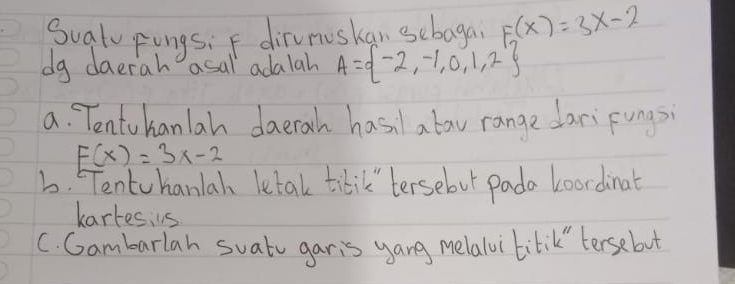 Suatu Fungsi F dirumuskan sebagai F(x) = 3x-2
dg daerah asal adalah A = {-2, -1, 0, 1, 2}
a. Tentukanlah daerah hasil atau range dari Fungsi
F(x) = 3x-2
b. Tentukanlah letak titik" tersebut pada koordinat
kartesius
C. Gambarlah suatu garis yang melalui titik" tersebut